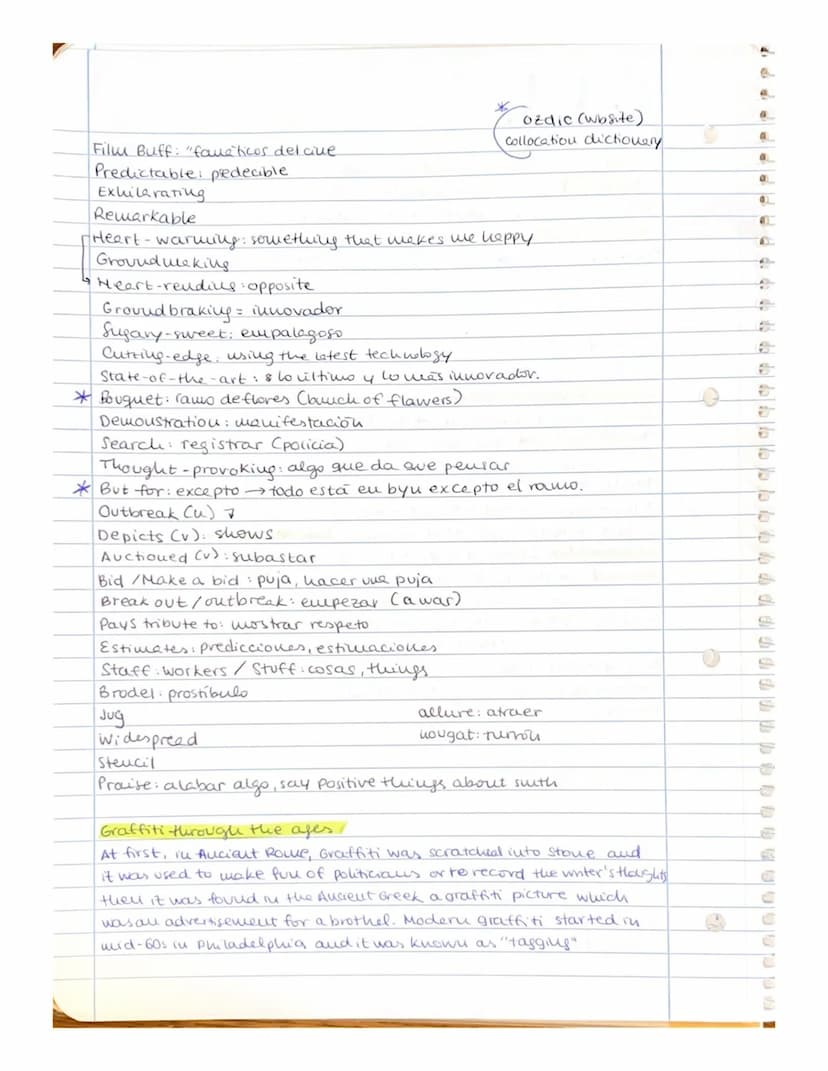 * ozdic (wbsite)
collocation dictionary
Film Buff: "fanáticos del cine
Predictable: predecible
Exhilarating
Remarkable
Heart-warming: something that makes me happy
Groundmaking
Heart-rending: opposite
Groundbraking = innovador
Sugary-sweet: empalagoso
Cutting-edge: using the latest technology
State-of-the-art: lo último y lo más innovador.
* Bouquet: ramo de flores (bunch of flowers)
Demonstration: manifestación
Search: registrar (policía)
Thought-provoking: algo que da que pensar
* But for: excepto → todo está en byu excepto el ramo.
Outbreak (n) ↴
Depicts (v): shows
Auctioned (v): subastar
Bid / Make a bid: puja, hacer una puja
Break out / outbreak: empezar (a war)
Pays tribute to: mostrar respeto
Estimates: predicciones, estimaciones
Staff: workers / Stuff: cosas, things
Brodel: prostíbulo
Jug allure: atraer
Widespread nougat: turrón
Stencil
Praise: alabar algo, say positive things about smth
Graffiti through the ages
At first, in Ancient Rome, Graffiti was scratched into stone and
it was used to make fun of politicians or to record the writer's thoughts
then it was found in the Ancient Greek a graffiti picture which
was an advertisement for a brothel. Modern graffiti started in
mid-60s in Philadelphia and it was known as "tagging"